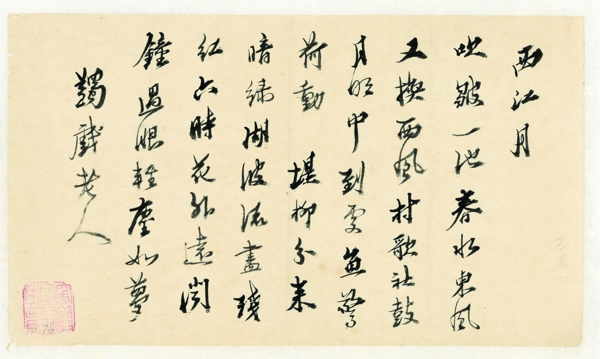 西江月
吹皺一池春水東風
又換西風村歌社鼓
月明中到處魚驚
荷動 堤柳分來
暗綠湖波流盡殘
紅六時花外遠聞
鐘過眼輕塵如夢
蠲戲老人
76